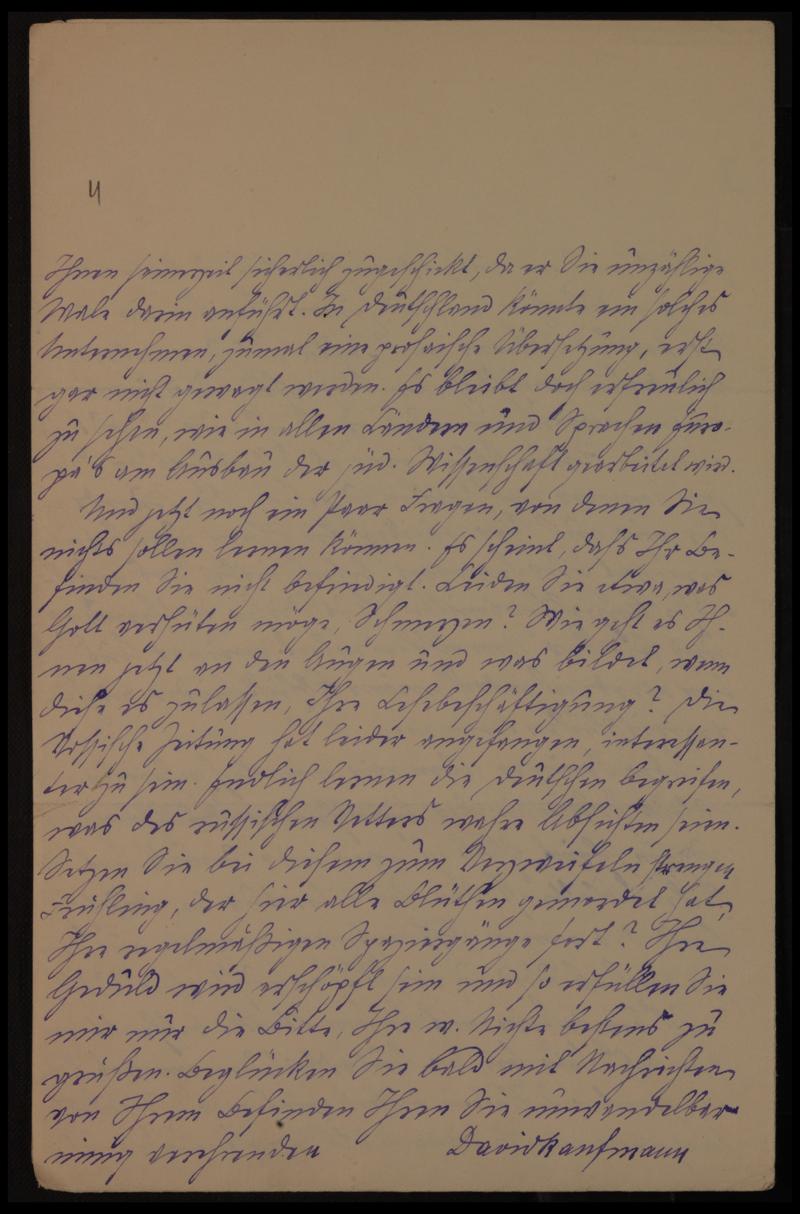 4
Ihnen seinerzeit sicherlich zugeschickt, da er Sie unzählige
Male darin anführt. In Deutschland könnte ein solches
Unternehmen, zumal eine prosaische Übersetzung, erst
gar nicht gewagt werden. Es bleibt doch erfreulich
zu sehen, wie in allen Ländern und Sprachen Euro-
pa's am Ausbau der jüd. Wissenschaft gearbeitet wird.
Und jetzt noch ein Paar Fragen, von denen Sie
nichts sollen lernen können. Es scheint, daß Ihr Be-
finden Sie nicht befriedigt. Leiden Sie etwa, was
Gott verhüten möge, Schmerzen? Wie geht es Ih-
nen jetzt an den Augen und was bildet, wenn
diese es zulassen, Ihre Lesebeschäftigung? Die
Vossische Zeitung hat leider angefangen, interessan-
ter zu sein. Endlich lernen die Deutschen begreifen,
was des russischen Vetters wahre Absichten seien.
Setzen Sie bei diesem zum Verzweifeln strengen
Frühling, der hier alle Blüthen gemordet hat,
Ihre regelmäßigen Spaziergänge fort? Ihre
Geduld wird erschöpft sein und so erfüllen Sie
mir nur die Bitte, Ihre w. Nichte bestens zu
grüßen. Beglücken Sie bald mit Nachrichten
von Ihrem Befinden Ihren Sie unwandelbar
innig verehrenden David Kaufmann